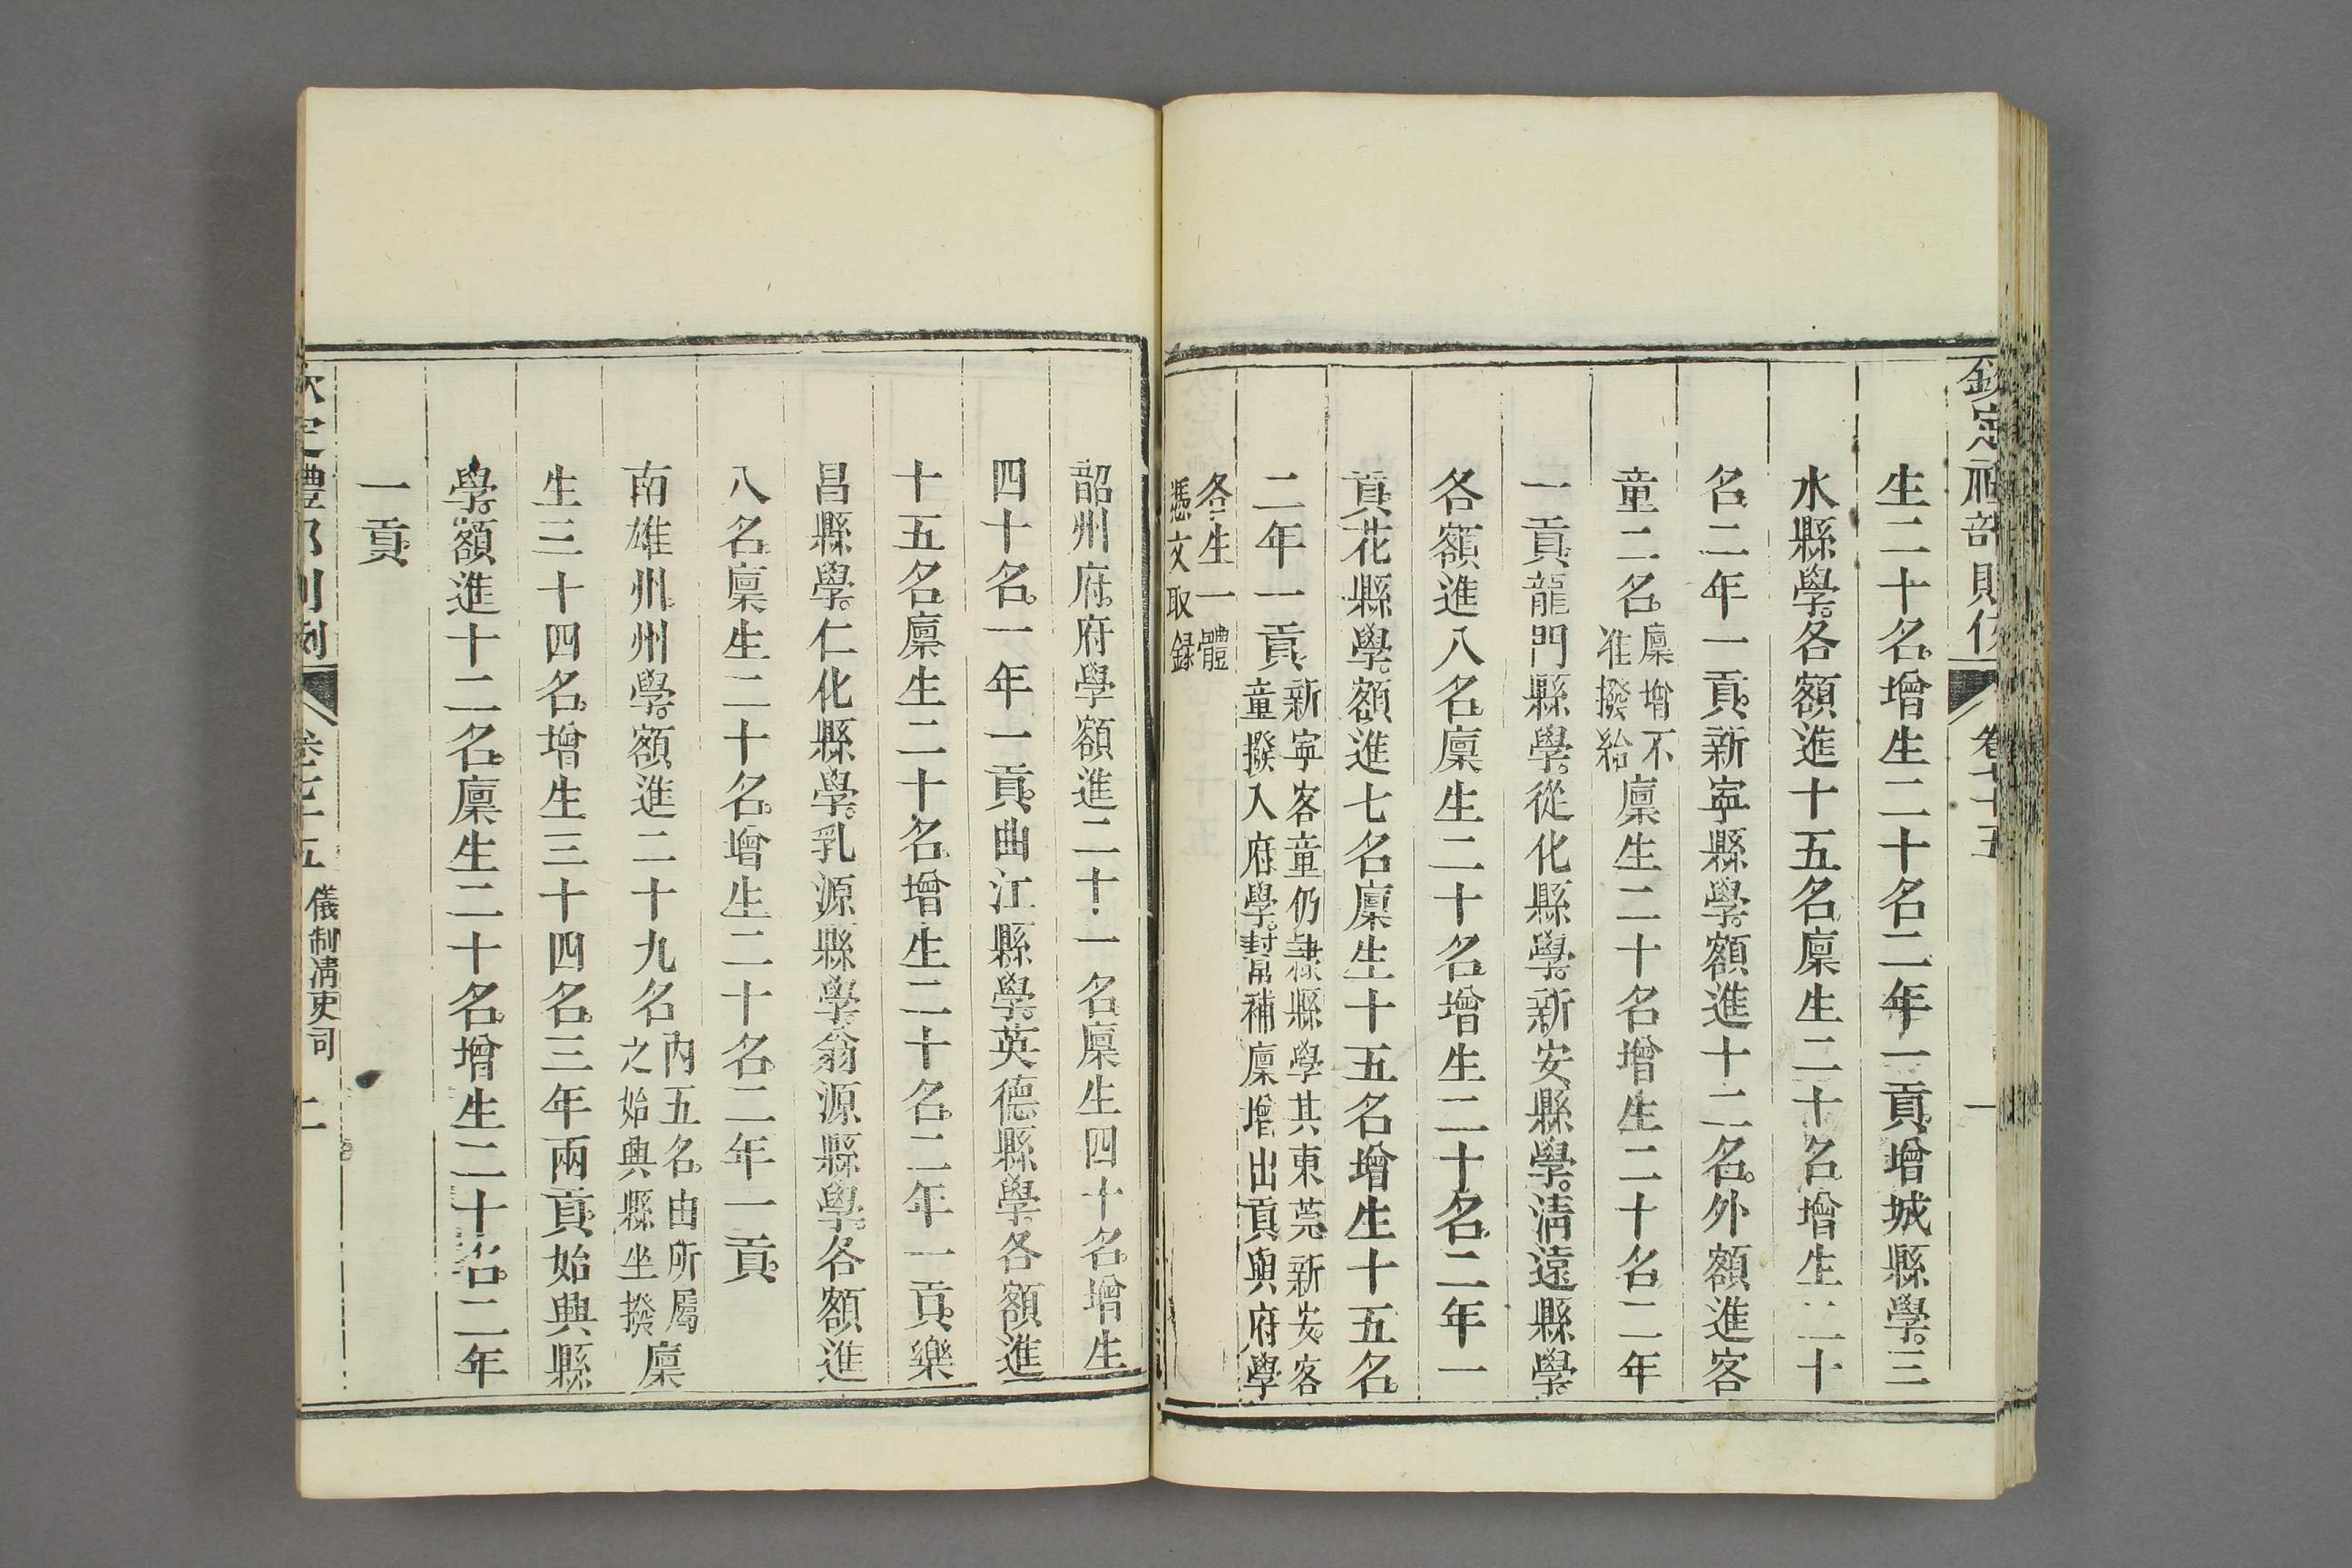 欽定禮部則例 卷七十五 一
生二十名增生二十名二年一貢增城縣學三
水縣學各額進十五名廩生二十名增生二十
名二年一貢新寧縣學額進十二名外額進客
童二名廩增不准撥給廩生二十名增生二十名二年
一貢龍門縣學從化縣學新安縣學清遠縣學
各額進八名廩生二十名增生二十名二年一
貢花縣學額進七名廩生十五名增生十五名
二年一貢新寧客童仍隸縣學其東莞新安客童撥入府學幫補廩增出貢與府學
各生一體憑文取錄
韶州府府學額進二十一名廩生四十名增生
四十名一年一貢曲江縣學英德縣學各額進
十五名廩生二十名增生二十名二年一貢樂
昌縣學仁化縣學乳源縣學翁源縣學各額進
八名廩生二十名增生二十名二年一貢
南雄州州學額進二十九名內五名由所屬之始興縣坐撥廩
生三十四名增生三十四名三年兩貢始興縣
學額進十二名廩生二十名增生二十名二年
一貢
欽定禮部則例 卷七十五 儀制清吏司 二